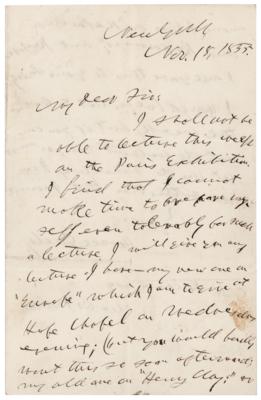 New York
Nov. 18, 1855.
My dear Sir:
I shall not be
able to lecture this week
on the Paris Exhibition.
I find that I cannot
make time to prepare my-
self even tolerably for such
a lecture. I will give 'em any
lecture I have—my new one on
"Europe" which I am to give at
Hope Chapel on Wednesday
evening, (but you would hardly
want this so soon afterward)
my old one on "Henry Clay," or